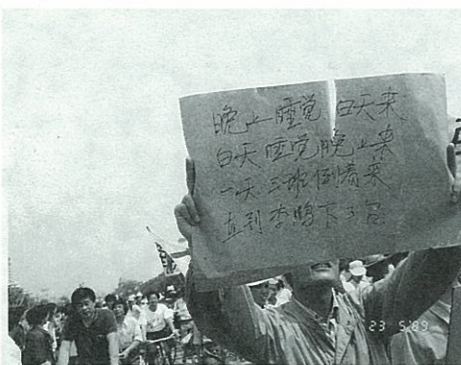 晚上睡觉 白天来
白天睡觉晚上来
一天三班倒着来
直到李鹏下了台
23 5'89